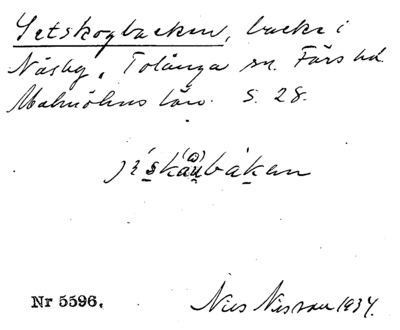 Getskogbacken, backe i
Näsby, Tolånga sn. Färs hd.
Malmöhus län. S. 28.
Nr 5596.
Nils Nilsson 1934.